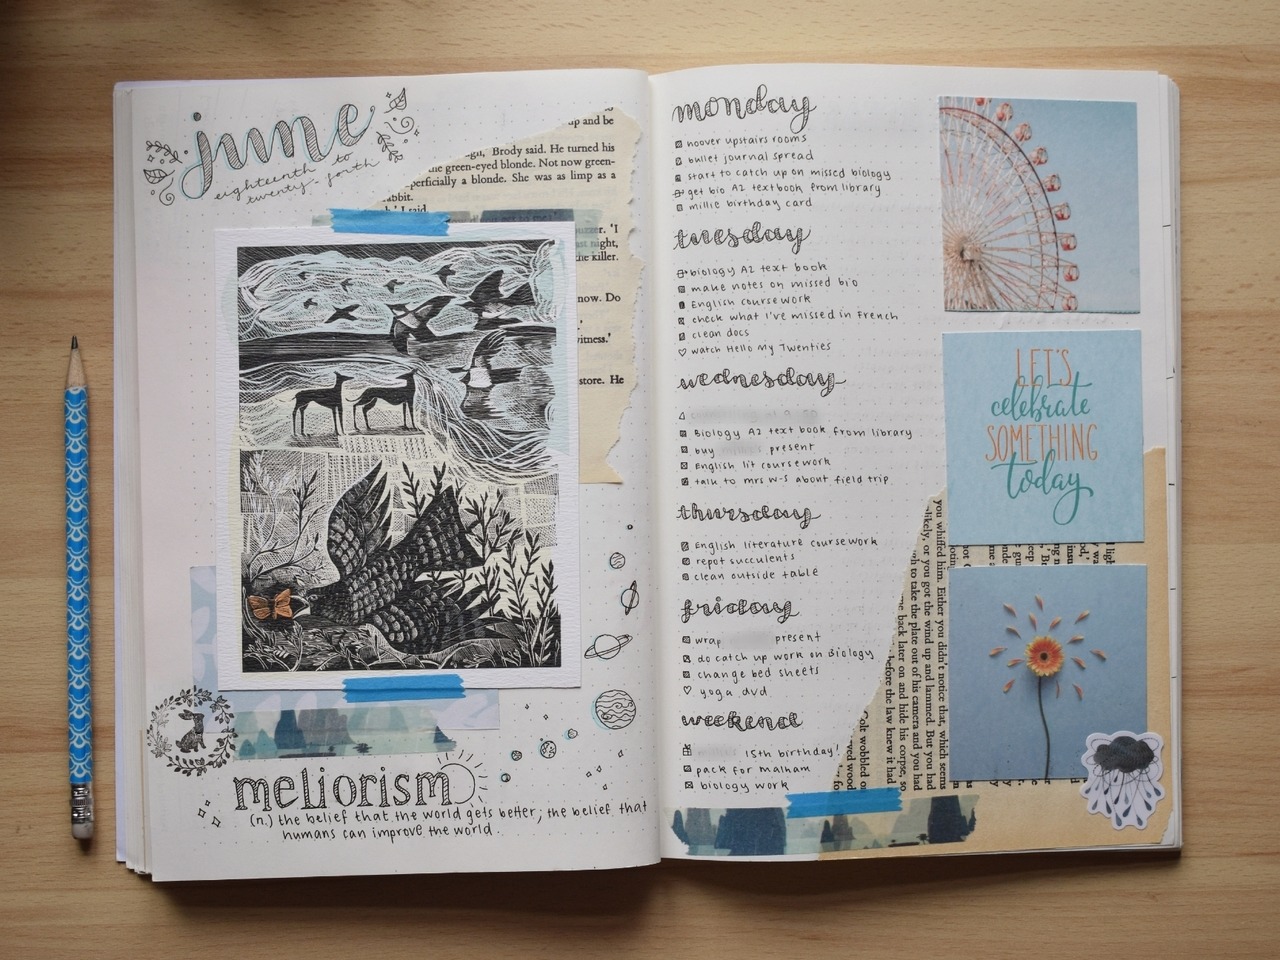 june
eighteenth to
twenty-forth
up and be
Brody said. He turned his
the green-eyed blonde. Not now green-
perficially a blonde. She was as limp as a
abbit.
I said
'I
ast night,
he killer.
now. Do
witness.'
store. He
meliorism
(n.) the belief that the world gets better; the belief that
humans can improve the world.
monday
hoover upstairs rooms
bullet journal spread
start to catch up on missed biology
get bio A2 textbook from library
millie birthday card
tuesday
biology A2 text book
make notes on missed bio
English coursework
check what I've missed in French
clean docs
watch Hello My Twenties
wednesday
Biology A2 text book from library
buy present
English lit coursework
talk to mrs W-S about field trip
thursday
English literature coursework
repot succulents
clean outside table
friday
wrap present
do catch up work on biology
change bed sheets
yoga dvd
weekend
15th birthday!
pack for malham
biology work
LET'S
celebrate
SOMETHING
today
you whiffed him. Either you didn't notice that, which seems
likely, or you got the wind up and lammed. But you had
to take the plate out of his camera and you had
back later on and hide his corpse, so
before the law knew it had